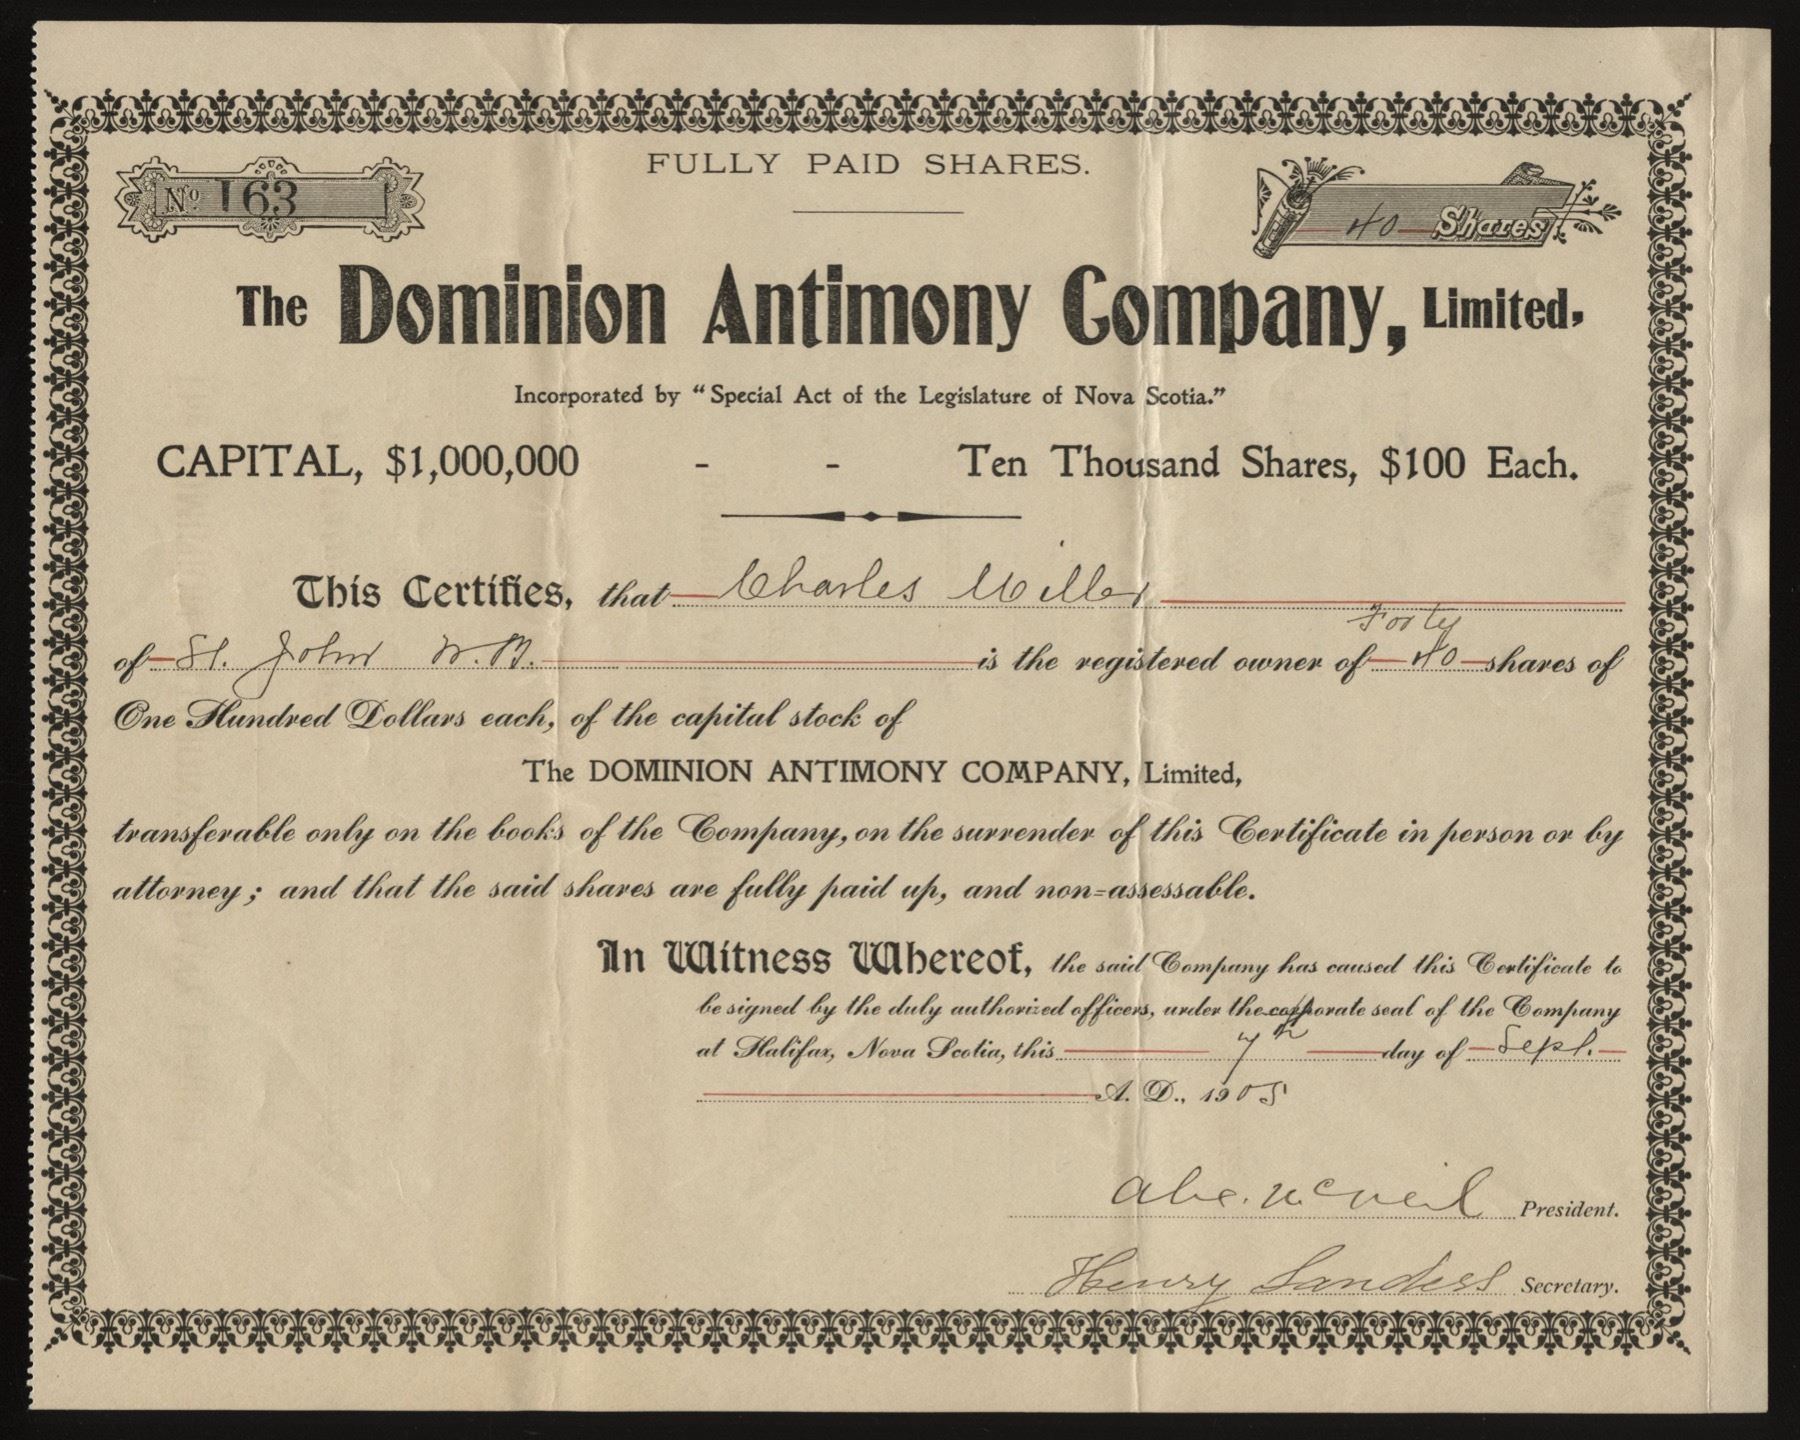 FULLY PAID SHARES.
No. 163
40 Shares
The Dominion Antimony Company, Limited,
Incorporated by "Special Act of the Legislature of Nova Scotia."
CAPITAL, $1,000,000 - - Ten Thousand Shares, $100 Each.
This Certifies, that Charles Miller
Forty
of St. John N.B. is the registered owner of 40 shares of
One Hundred Dollars each, of the capital stock of
The DOMINION ANTIMONY COMPANY, Limited,
transferable only on the books of the Company, on the surrender of this Certificate in person or by
attorney; and that the said shares are fully paid up, and non=assessable.
In Witness Whereof, the said Company has caused this Certificate to
be signed by the duly authorized officers, under the corporate seal of the Company
at Halifax, Nova Scotia, this 7th day of Sept.
A. D., 1905
Alex. McNeil President.
Henry Sanders Secretary.